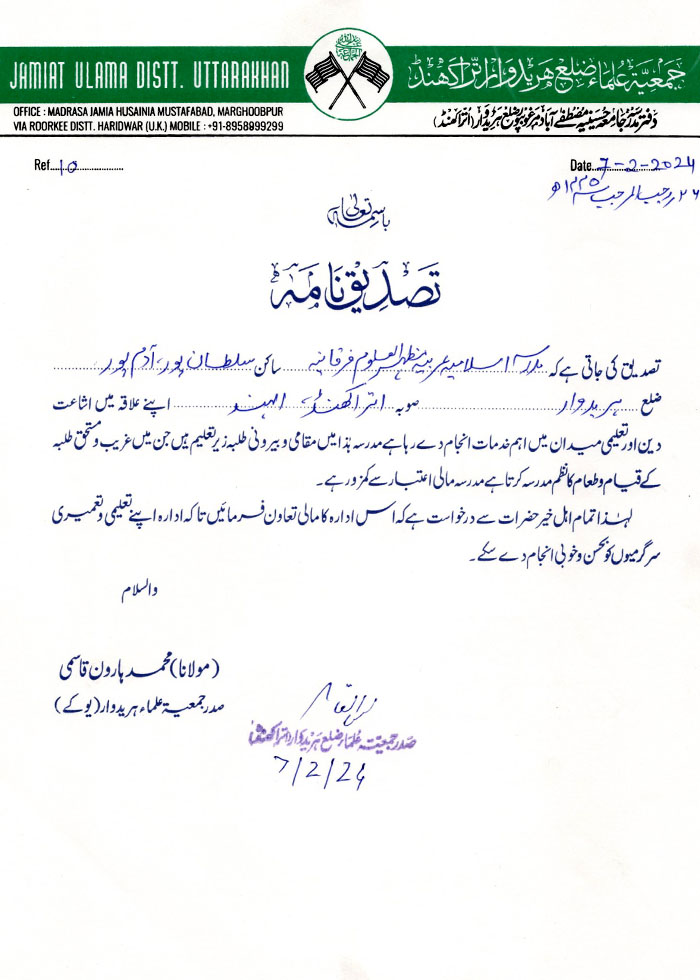 JAMIAT ULAMA DISTT. UTTARAKHAN
جمعیۃ علماء ضلع ہریدوار اتراکھنڈ
OFFICE : MADRASA JAMIA HUSAINIA MUSTAFABAD, MARGHOOBPUR
VIA ROORKEE DISTT. HARIDWAR (U.K.) MOBILE : +91-8958999299
دفتر مدرسہ جامعہ حسینیہ مصطفےٰ آباد مرغوبپور ضلع ہریدوار (اتراکھنڈ)
Ref....10....................
Date..7-2-2024
۲۶ رجب المرجب ۱۴۴۵ھ
باسمہٖ تعالیٰ
تصدیق نامہ
تصدیق کی جاتی ہے کہ مدرسہ اسلامیہ عربیہ مظہر العلوم فرقانیہ ساکن سلطان پور، آدم پور
ضلع ہریدوار صوبہ اتراکھنڈ، الہند اپنے علاقہ میں اشاعت
دین اور تعلیمی میدان میں اہم خدمات انجام دے رہا ہے مدرسہ ہذا میں مقامی و بیرونی طلبہ زیر تعلیم ہیں جن میں غریب و مستحق طلبہ
کے قیام و طعام کا نظم مدرسہ کرتا ہے مدرسہ مالی اعتبار سے کمزور ہے۔
لہٰذا تمام اہل خیر حضرات سے درخواست ہے کہ اس ادارہ کا مالی تعاون فرمائیں تاکہ ادارہ اپنے تعلیمی و تعمیری
سرگرمیوں کو بحسن و خوبی انجام دے سکے۔
والسلام
(مولانا) محمد ہارون قاسمی
صدر جمعیۃ علماء ہریدوار (یو کے)
صدر جمعیۃ علماء ضلع ہریدوار (اتراکھنڈ)
7/2/24